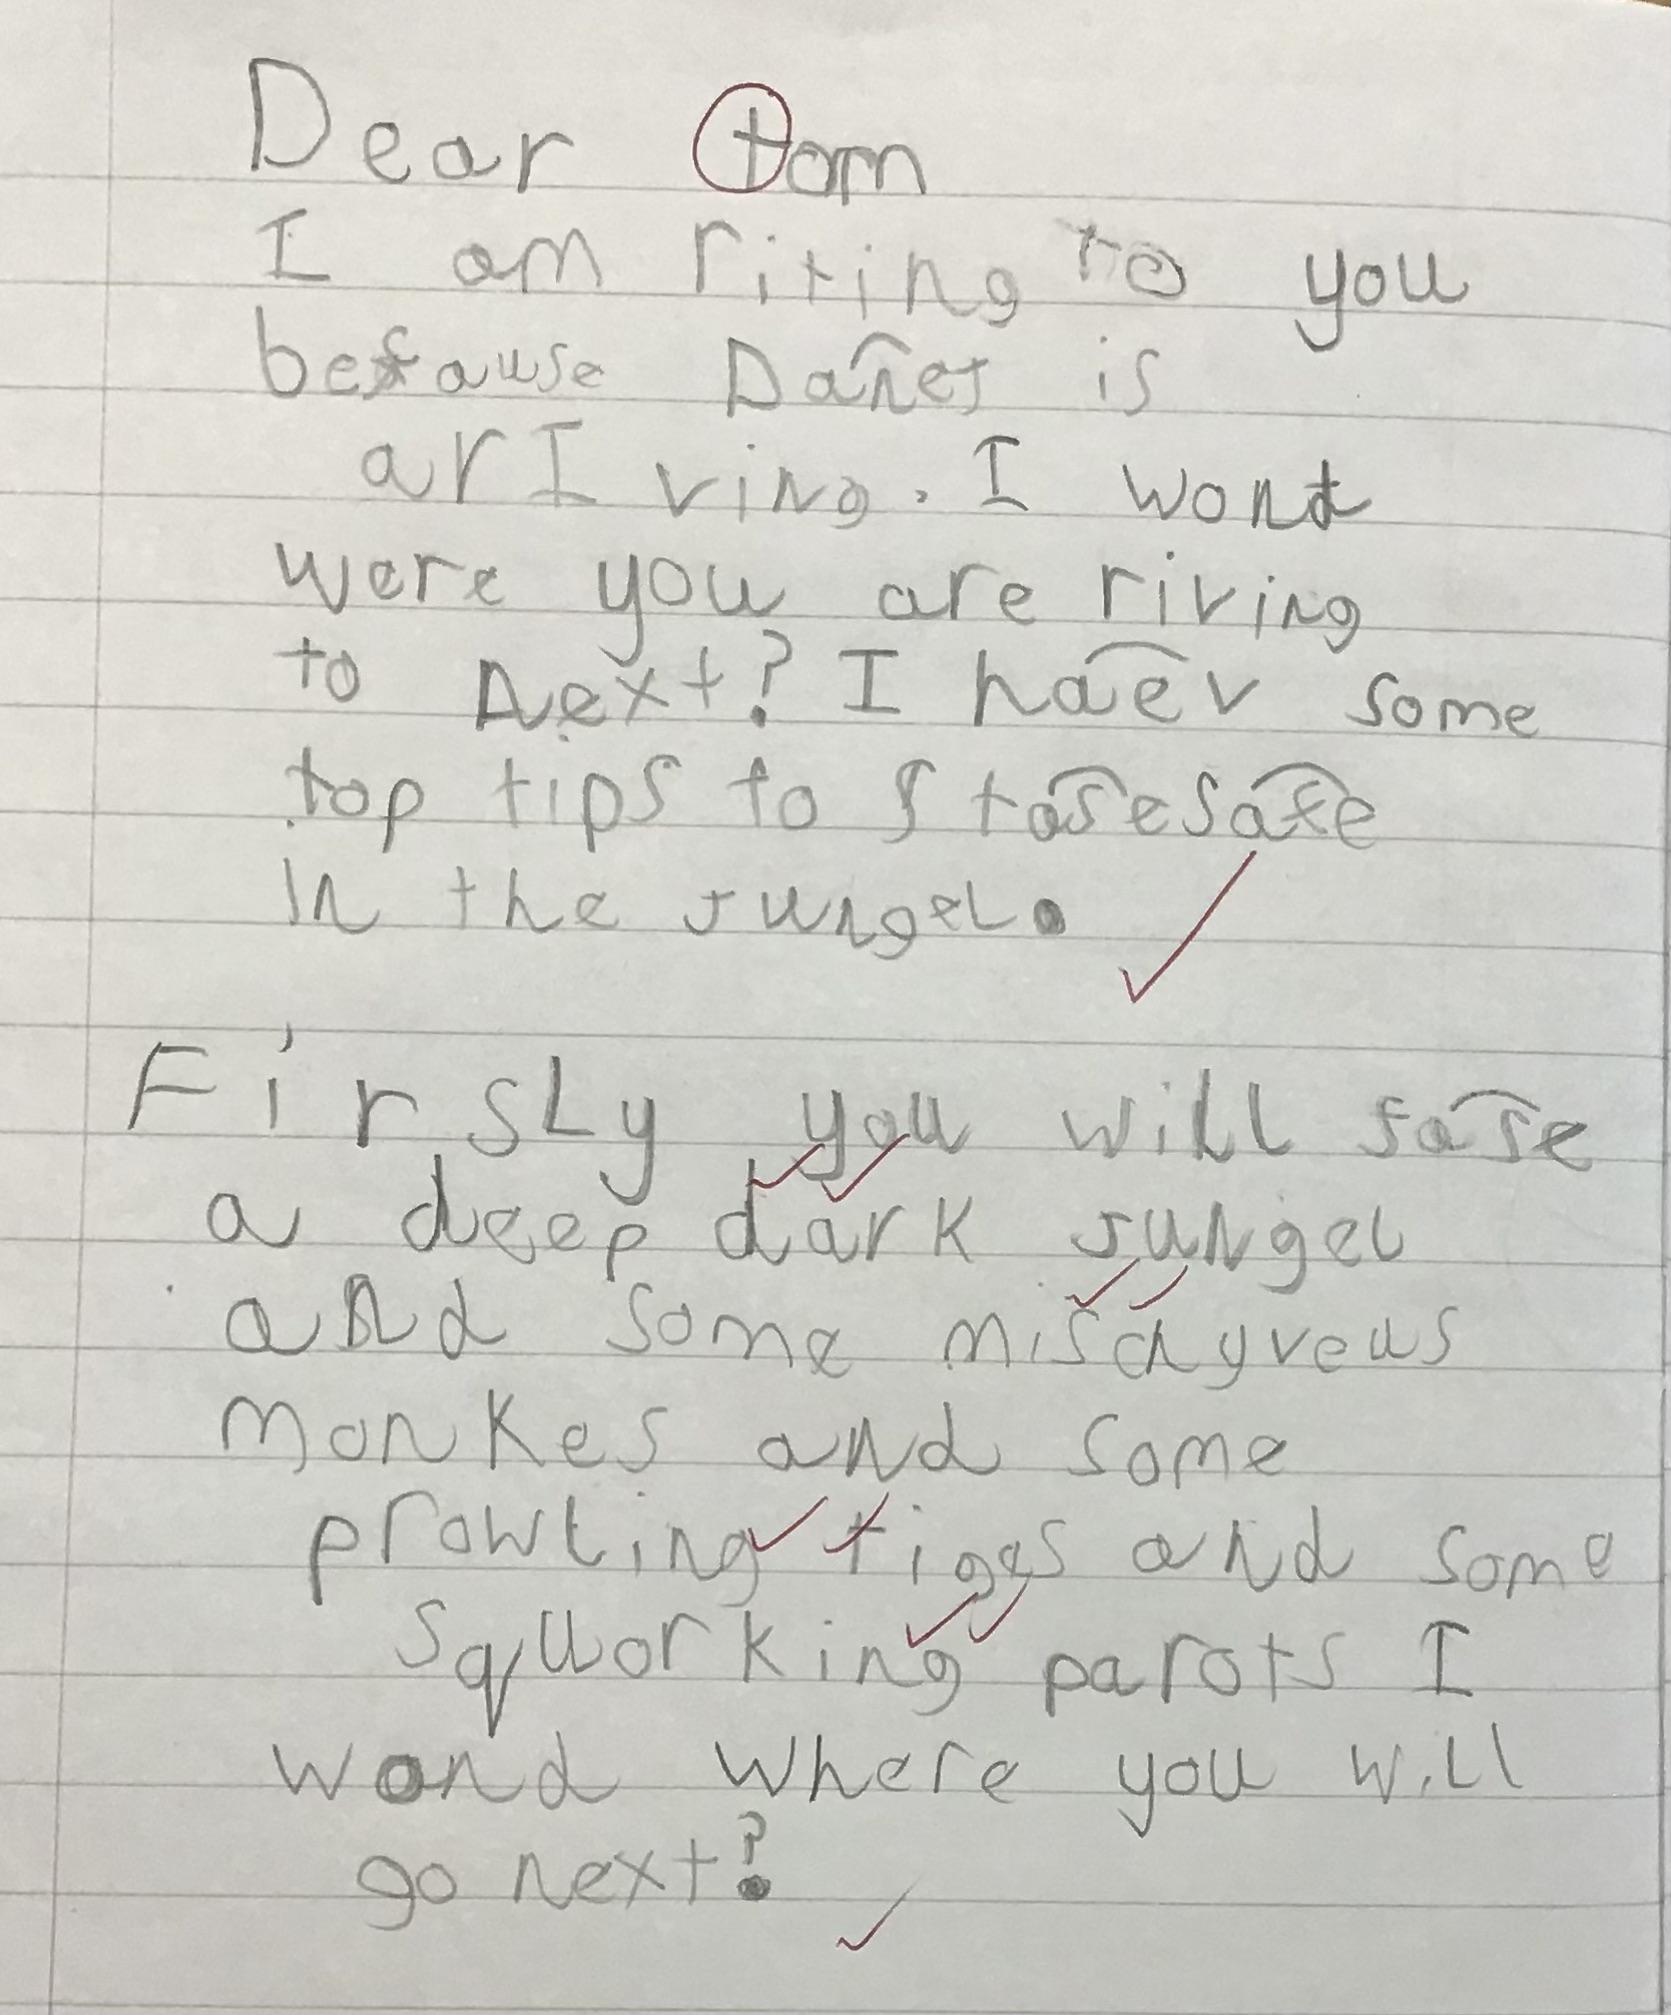 Dear tom
I am riting to you
because Danet is
arIving. I wond
were you are riving
to next? I haev some
top tips to stasesafe
in the jungel.
Firsly you will fase
a deep dark jungel
and some misdyveus
monkes and some
prowling tiges and some
squorking parots I
wond where you will
go next?